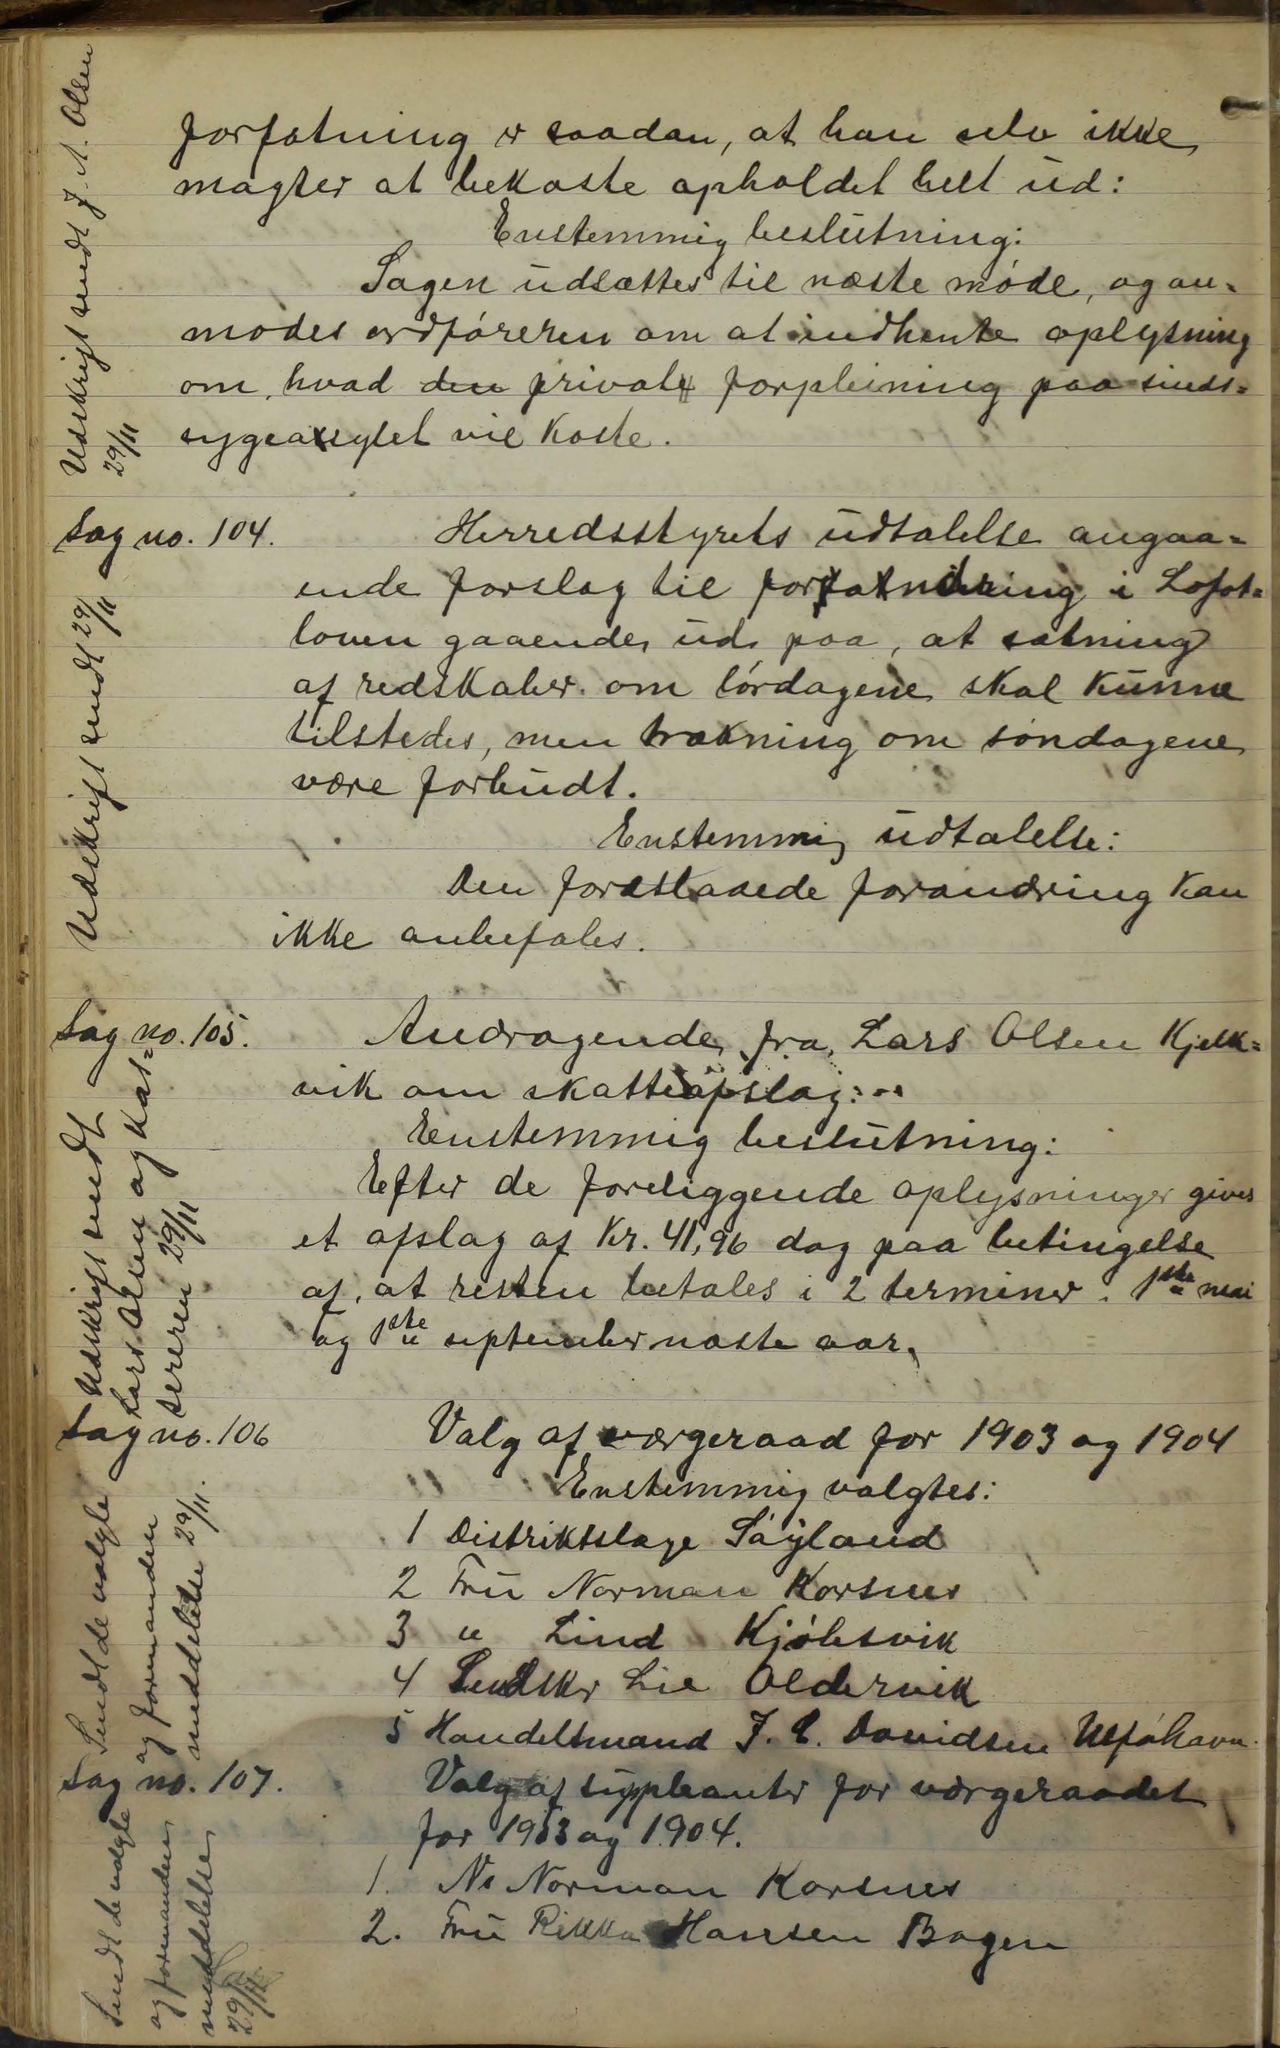 forfatning er saadan, at han selv ikke
magter at bekoste opholdet helt ud:
Enstemmig beslutning:
Sagen udsættes til næste møde, og an-
modes ordføreren om at indhente oplysning
om, hvad den privat forpleining paa sinds-
sygeasylet vil koste.
Udskrift sendt J. A. Olsen
29/11
Sag no. 104.
Herredsstyrets udtalelse angaa-
ende forslag til forandring i Lofot-
loven gaaende ud paa, at sætning
af redskaber om lördagene skal kunne
tilstedes, men trækning om søndagene
være forbudt.
Enstemmig udtalelse:
Den foreslaaede forandring kan
ikke anbefales.
Udskrift sendt 29/11
Sag no. 105.
Andragende fra Lars Olsen Kjelk-
vik om skatteafslag:
Enstemmig beslutning:
Efter de foreliggende oplysninger gives
et afslag af Kr. 41,96 dog paa betingelse
af, at resten betales i 2 terminer. 1ste mai
og 1ste september næste aar.
Udskrift sendt
Lars Olsen og kas-
sereren 29/11
Sag no. 106
Valg af værgeraad for 1903 og 1904
Enstemmig valgtes:
1 Distriktslæge Söyland
2 Fru Norman Korsnes
3 " Lind Kjøbsvik
4 Lie Oldervik
5 Handelsmand J. C. Davidsen Ulføhavn
Sendt de valgte
og formanden
meddelelse 29/11.
Sag no. 107.
Valg af suppleanter for værgeraadet
for 1903 og 1904.
1. Ns Norman Korsnes
2. Fru Rikka Hansen Bogen
Sendt de valgte
og formanden
meddelelse
29/11.